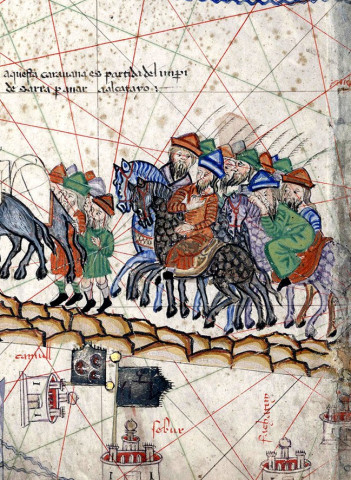 aquesta carauana es partida del imperi
de sarra p anar alcataro:
camull
sobur